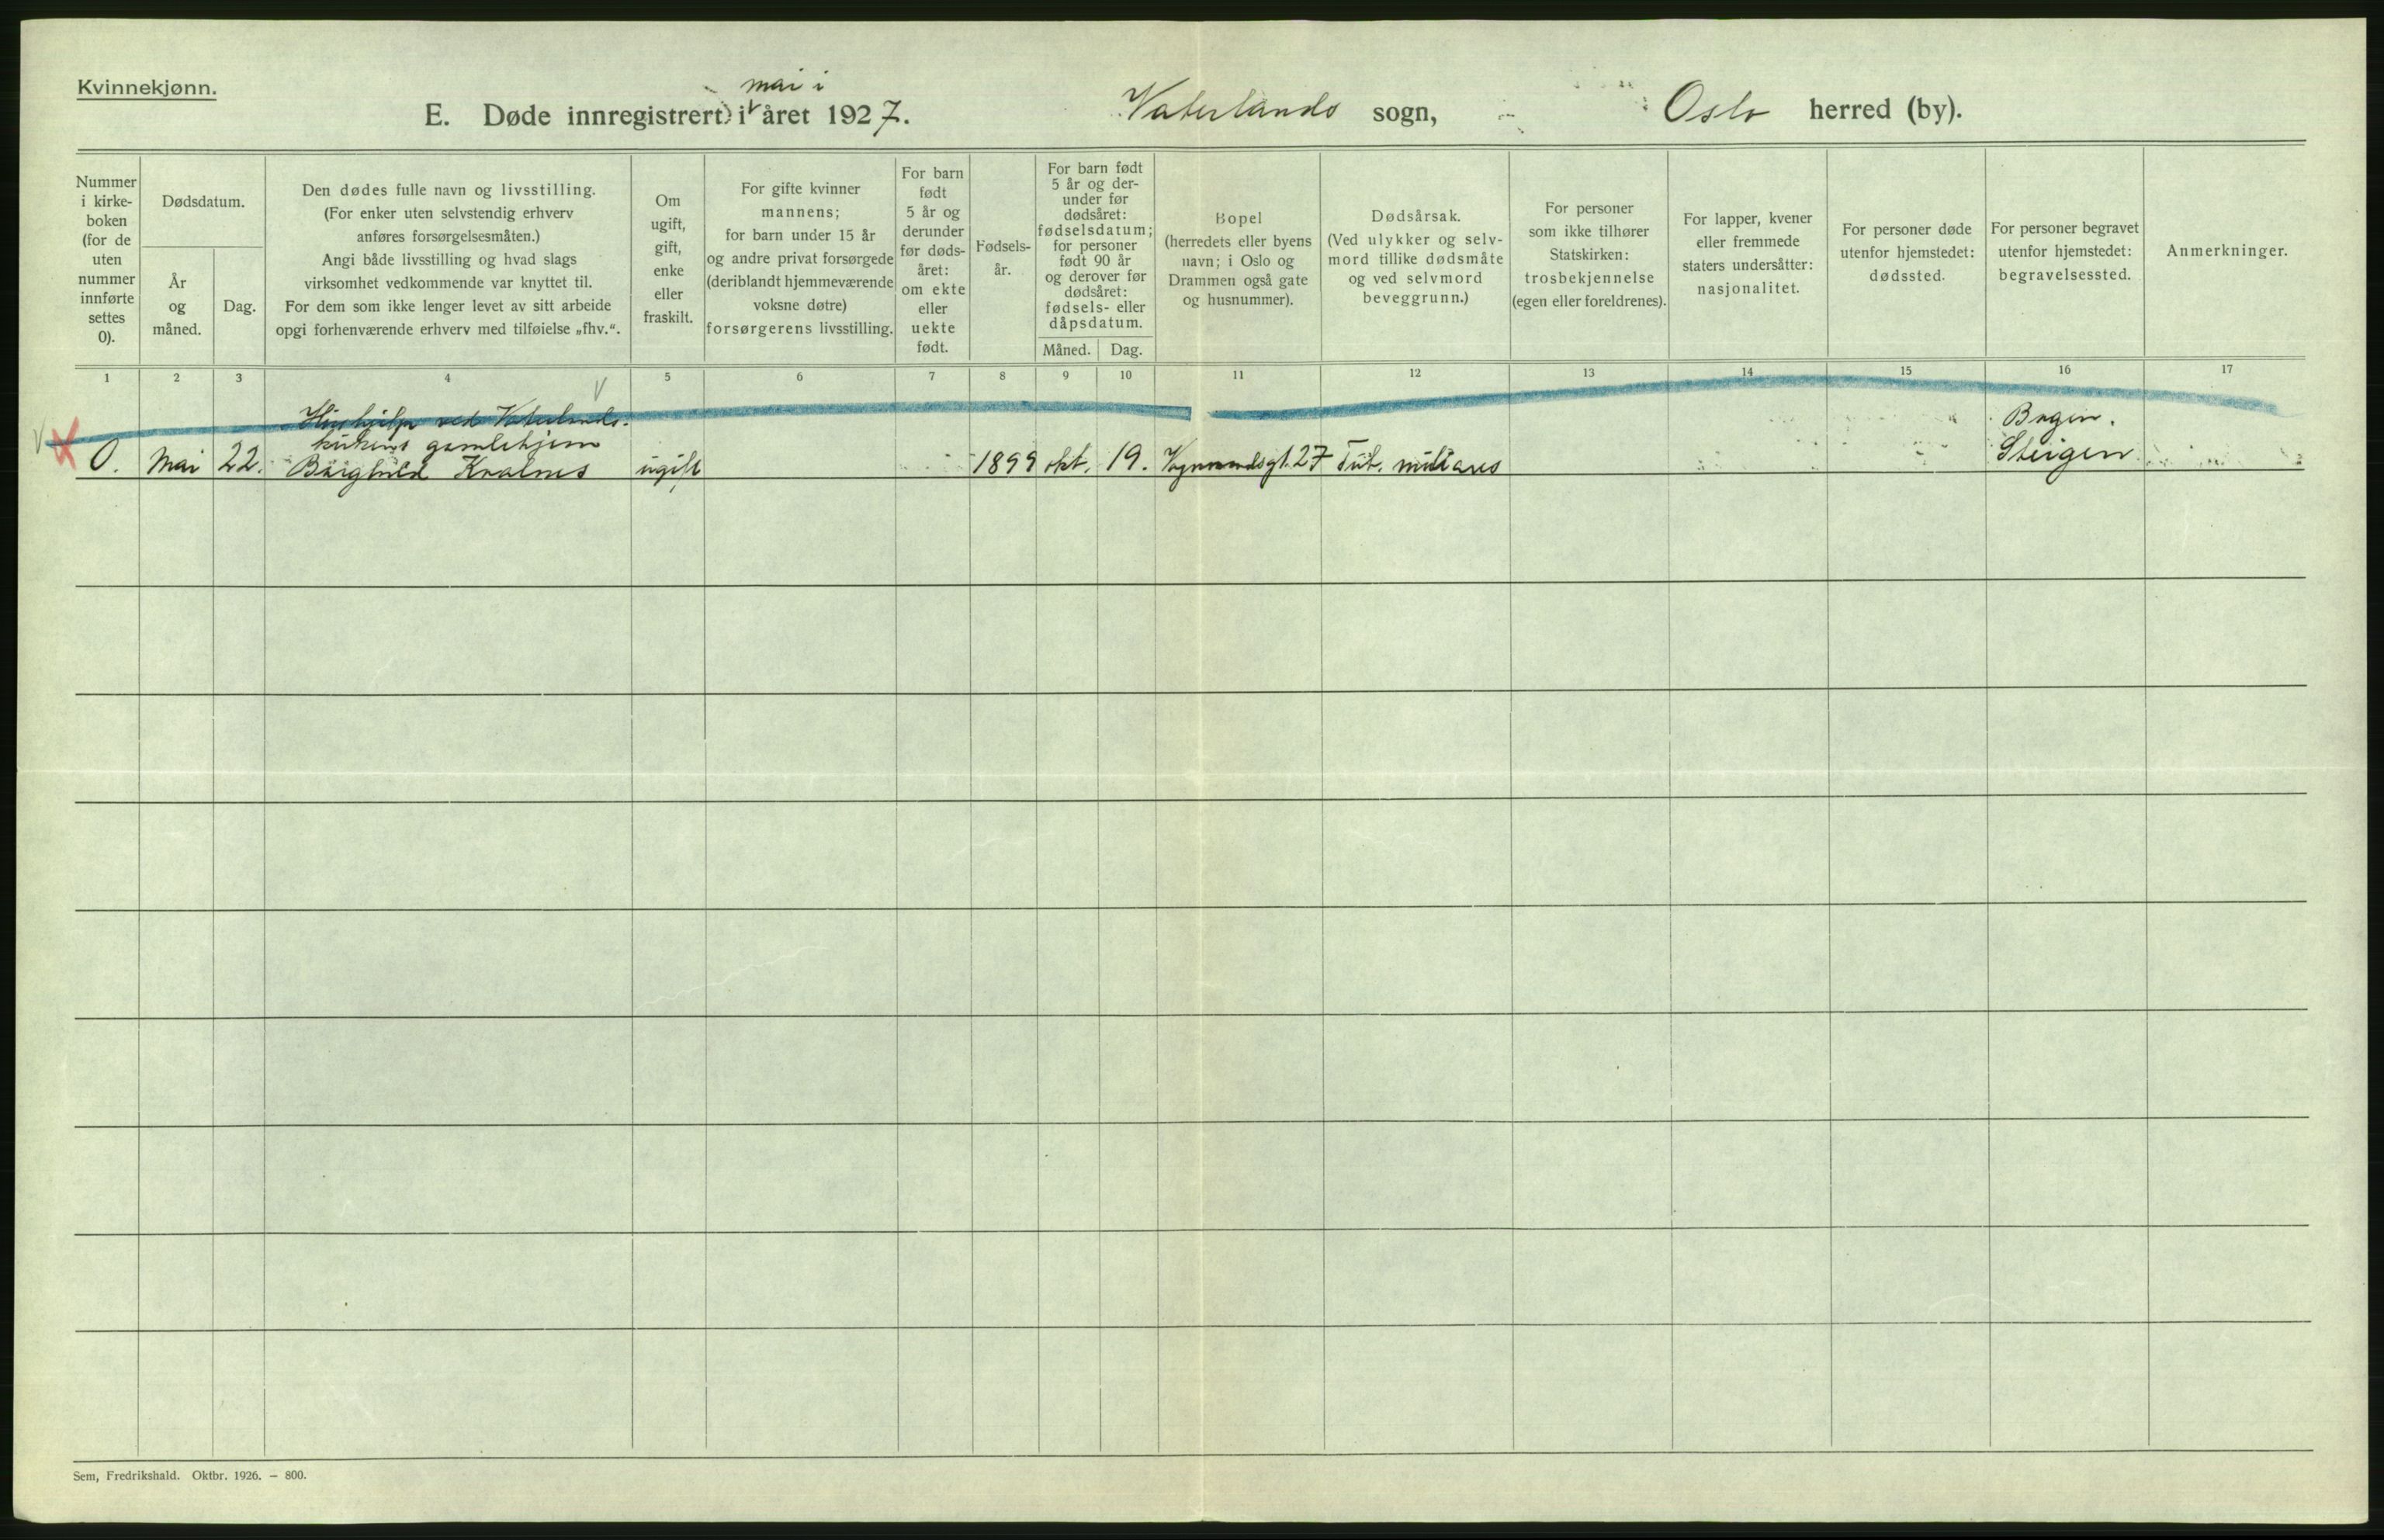 Kvinnekjønn.
mai i
E. Døde innregistrert i året 1927. Vaterlands sogn, Oslo herred (by).
Nummer
i kirke-
boken
(for de
uten
nummer
innførte
settes
0).
Dødsdatum.
År
og
måned.
Dag.
Den dødes fulle navn og livsstilling.
(For enker uten selvstendig erhverv
anføres forsørgelsesmåten.)
Angi både livsstilling og hvad slags
virksomhet vedkommende var knyttet til.
For dem som ikke lenger levet av sitt arbeide
opgi forhenværende erhverv med tilføielse „fhv.“.
Om
ugift,
gift,
enke
eller
fraskilt.
For gifte kvinner
mannens;
for barn under 15 år
og andre privat forsørgede
(deriblandt hjemmeværende
voksne døtre)
forsørgerens livsstilling.
For barn
født
5 år og
derunder
før døds-
året:
om ekte
eller
uekte
født.
Fødsels-
år.
For barn født
5 år og der-
under før
dødsåret:
fødselsdatum;
for personer
født 90 år
og derover før
dødsåret:
fødsels- eller
dåpsdatum.
Måned. Dag.
Bopel
(herredets eller byens
navn; i Oslo og
Drammen også gate
og husnummer).
Dødsårsak.
(Ved ulykker og selv-
mord tillike dødsmåte
og ved selvmord
beveggrunn.)
For personer
som ikke tilhører
Statskirken:
trosbekjennelse
(egen eller foreldrenes).
For lapper, kvener
eller fremmede
staters undersåtter:
nasjonalitet.
For personer døde
utenfor hjemstedet:
dødssted.
For personer begravet
utenfor hjemstedet:
begravelsessted.
Anmerkninger.
1 2 3 4 5 6 7 8 9 10 11 12 13 14 15 16 17
Hushjelp ved Vaterlands-
kirkens gamlehjem
0. Mai 22. Borghild ugift 1899 okt. 19. 27 Tub. miliares
Bogen.
Steigen
Sem, Fredrikshald. Oktbr. 1926. — 800.